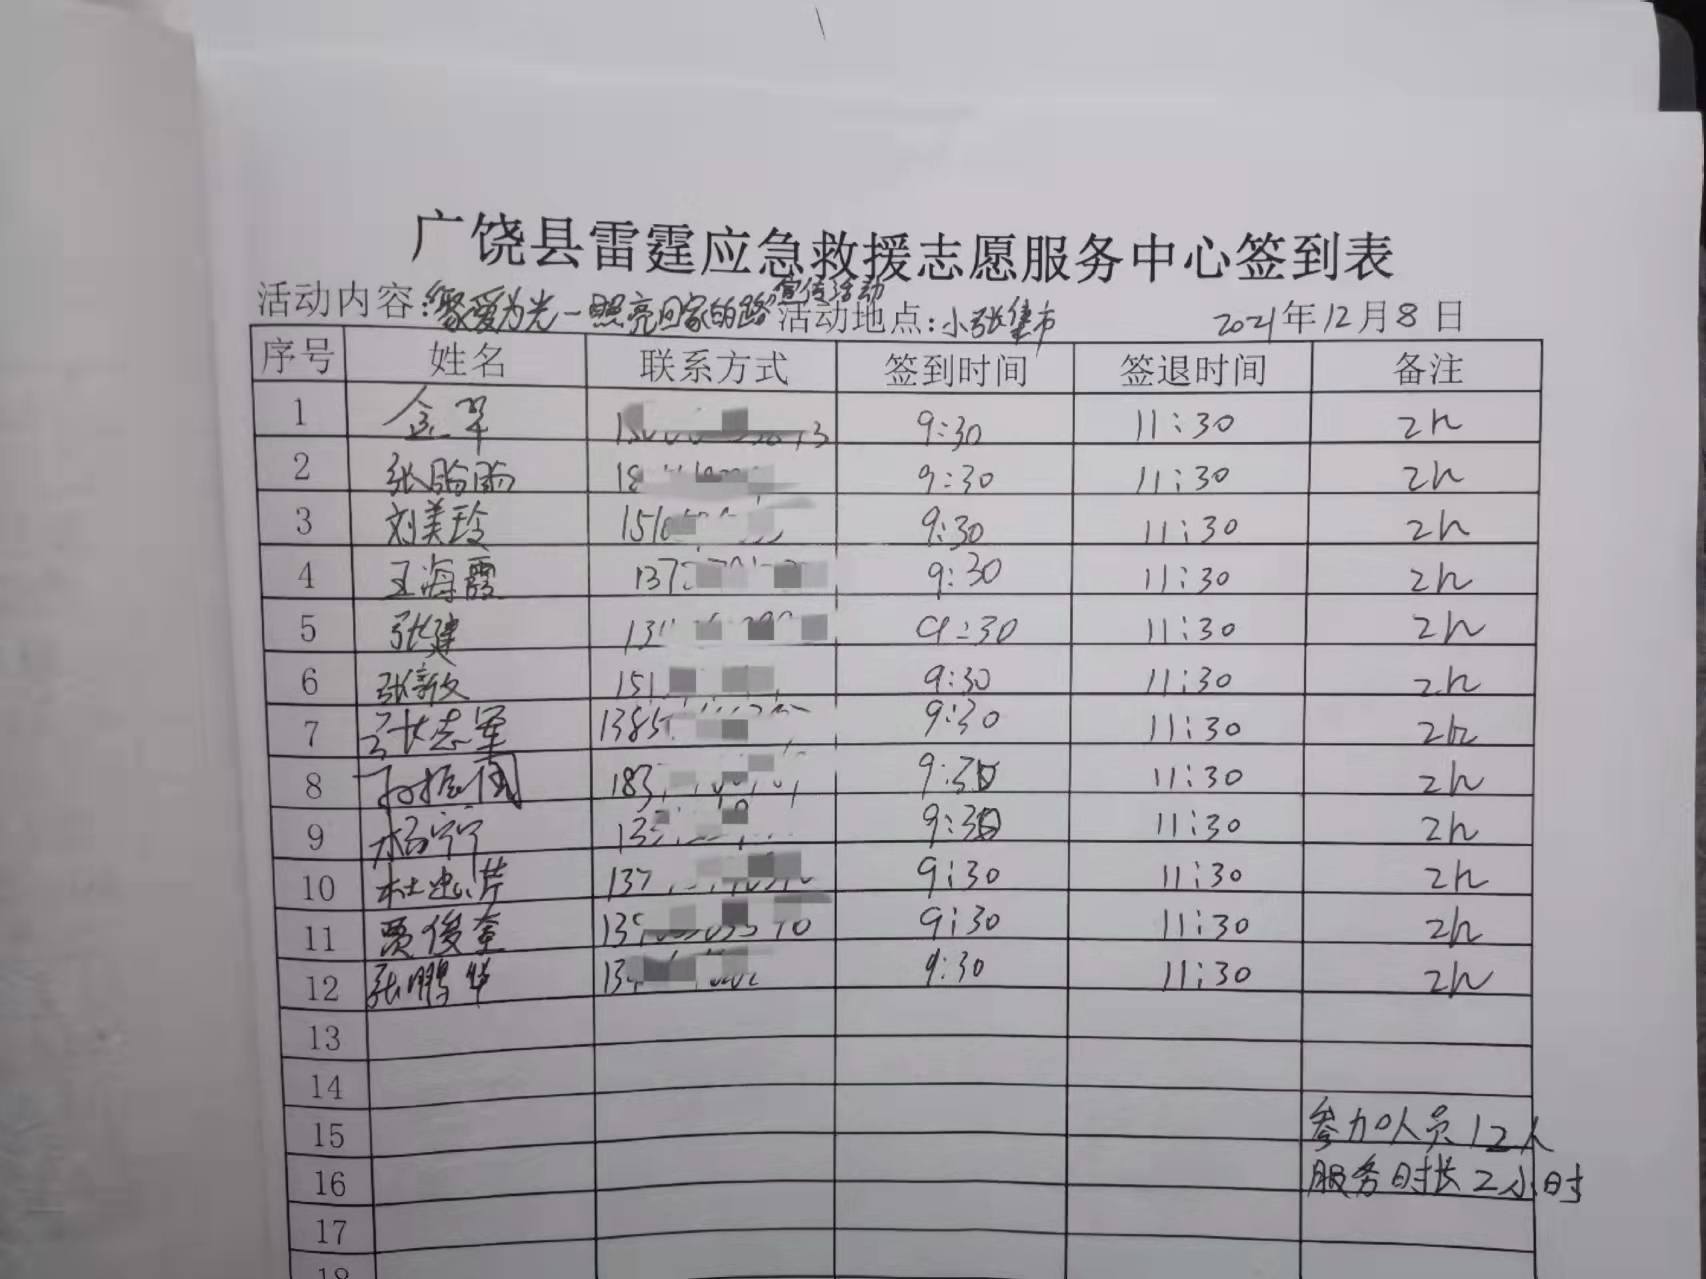 广饶县雷霆应急救援志愿服务中心签到表
活动内容:“聚爱为光—照亮回家的路”宣传活动 活动地点:小张集市 2021年12月8日
序号 姓名 联系方式 签到时间 签退时间 备注
1 金翠 9:30 11:30 2h
2 张 9:30 11:30 2h
3 刘美玲 151 9:30 11:30 2h
4 王海霞 137 9:30 11:30 2h
5 张建 9:30 11:30 2h
6 张新文 151 9:30 11:30 2h
7 张志军 1385 9:30 11:30 2h
8 183 9:30 11:30 2h
9 杨宁宁 9:30 11:30 2h
10 杜忠芹 137 9:30 11:30 2h
11 贾俊奎 9:30 11:30 2h
12 张鹏华 9:30 11:30 2h
13
14
15 参加人员12人
16 服务时长2小时
17
18